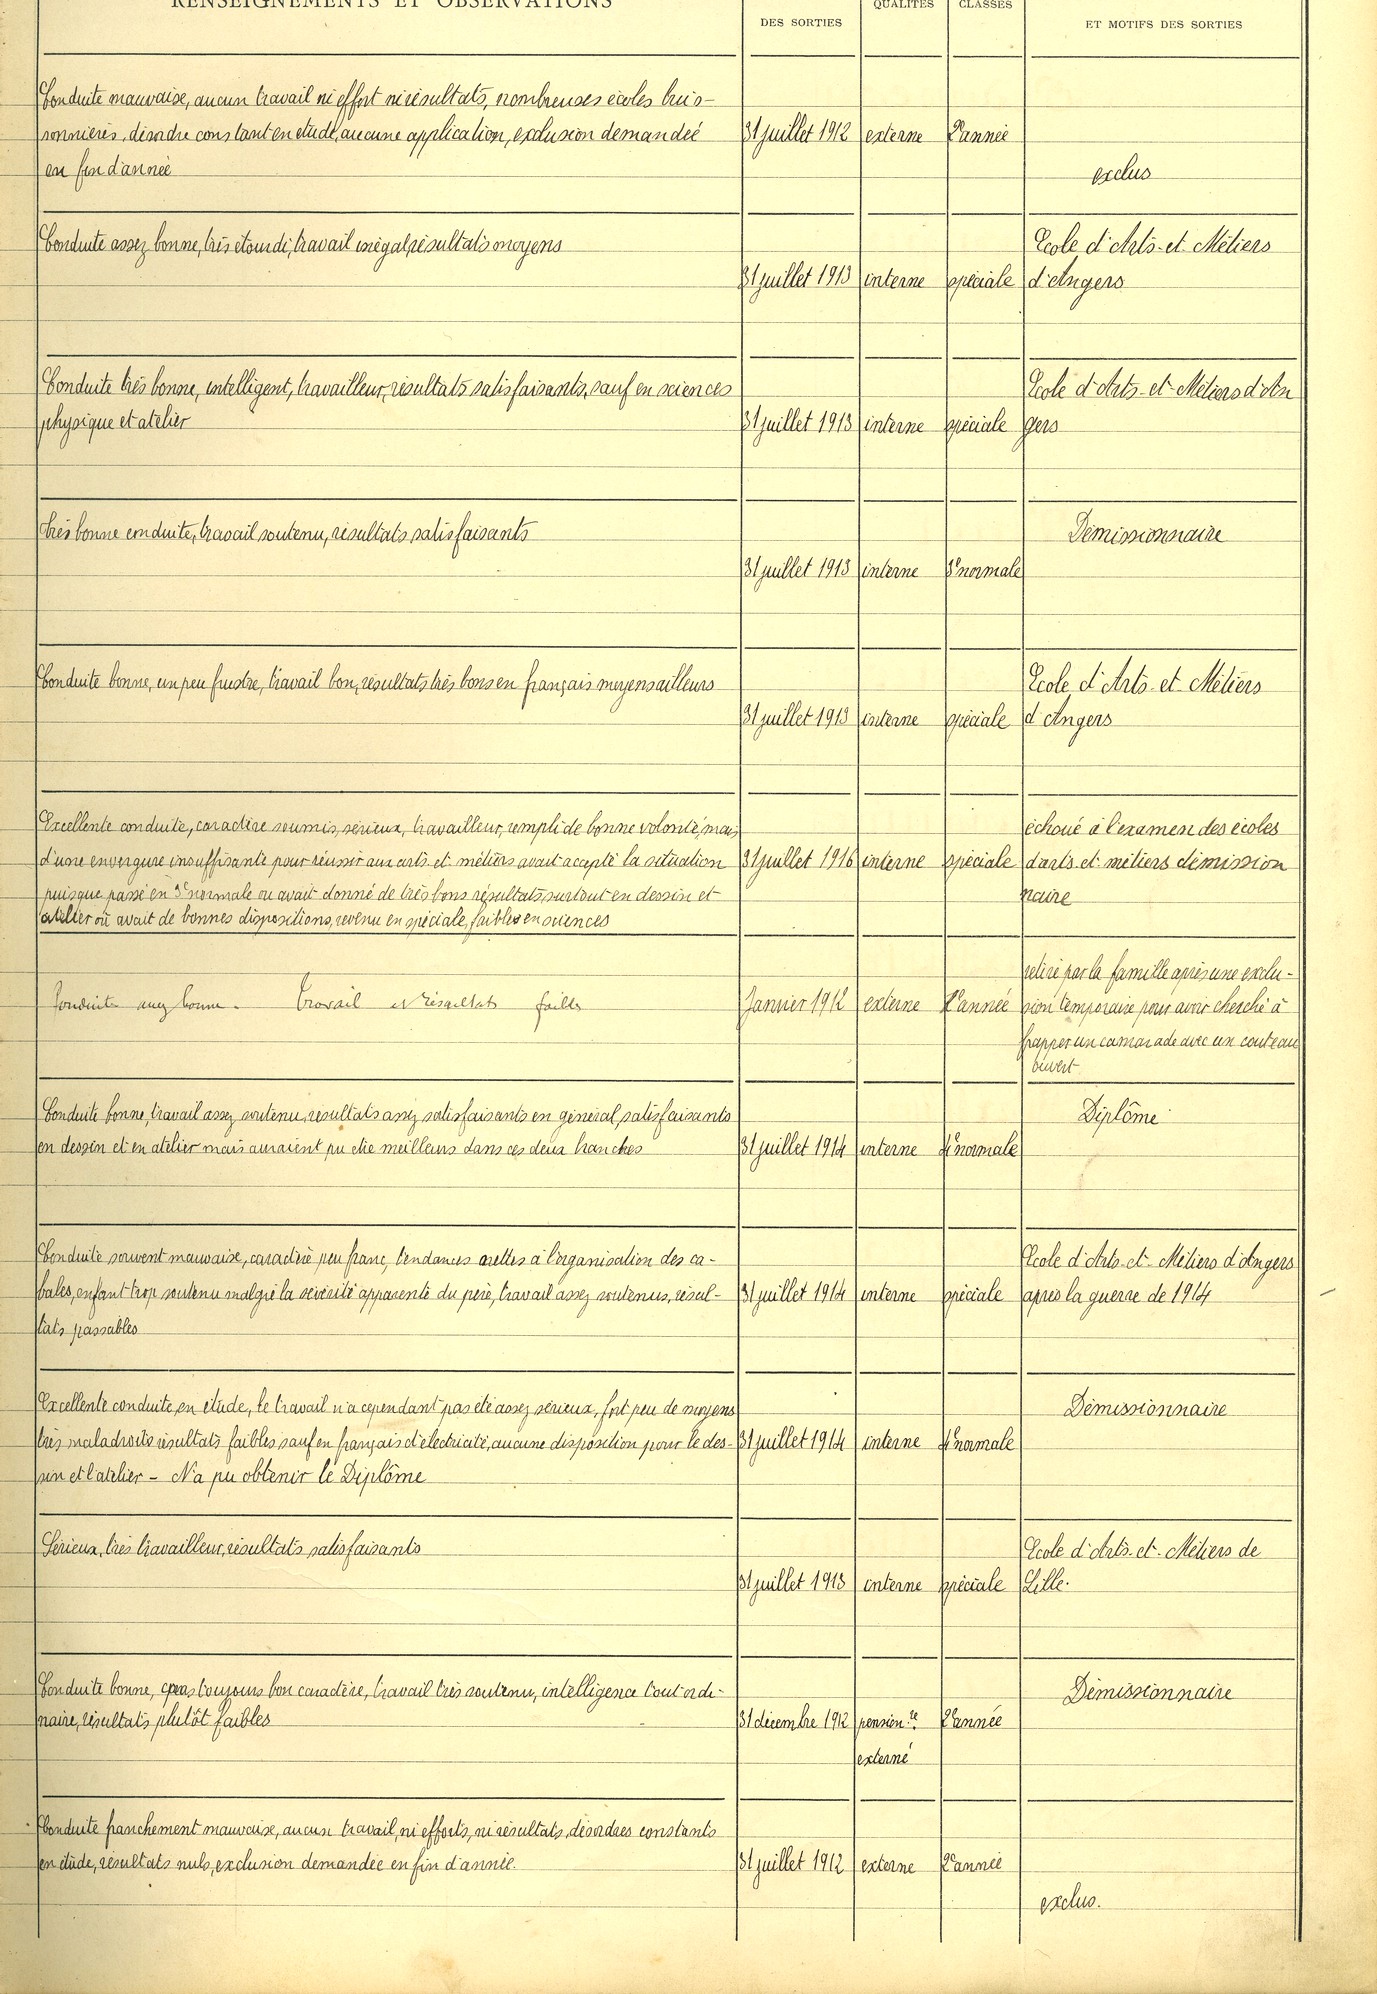 RENSEIGNEMENTS ET OBSERVATIONS
DES SORTIES
QUALITÉS
CLASSES
ET MOTIFS DES SORTIES
Conduite mauvaise, aucun travail ni effort ni résultats, nombreuses écoles buis-
sonnières, désordre constant en étude, aucune application, exclusion demandée
en fin d'année
31 juillet 1912
externe
2e année
exclus
Conduite assez bonne, très étourdi, travail inégal, résultats moyens
31 juillet 1913
interne
spéciale
Ecole d'Arts-et-Métiers
d'Angers
Conduite très bonne, intelligent, travailleur, résultats satisfaisants, sauf en sciences
physique et atelier
31 juillet 1913
interne
spéciale
Ecole d'Arts-et-Métiers d'An
gers
Très bonne conduite, travail soutenu, résultats satisfaisants
31 juillet 1913
interne
3e normale
Démissionnaire
Conduite bonne, un peu frustre, travail bon, résultats très bons en français moyens ailleurs
31 juillet 1913
interne
spéciale
Ecole d'Arts-et-Métiers
d'Angers
Excellente conduite, caractère soumis, sérieux, travailleur, rempli de bonne volonté, mais
d'une envergure insuffisante pour réussir aux arts et métiers avait accepté la situation
puisque passé en 3e normale ou avait donné de très bons résultats, surtout en dessin et
atelier où avait de bonnes dispositions, revenu en spéciale, faibles en sciences
31 juillet 1916
interne
spéciale
échoué à l'examen des écoles
d'arts et métiers démission
naire
Conduite assez bonne. Travail et résultats faibles
Janvier 1912
externe
1e année
retiré par la famille après une exclu-
sion temporaire pour avoir cherché à
frapper un camarade avec un couteau
ouvert
Conduite bonne, travail assez soutenu, résultats assez satisfaisants en général, satisfaisants
en dessin et en atelier mais auraient pu être meilleurs dans ces deux branches
31 juillet 1914
interne
4e normale
Diplôme
Conduite souvent mauvaise, caractère peu franc, tendances nettes à l'organisation des ca-
bales, enfant trop soutenu malgré la sévérité apparente du père, travail assez soutenus, résul-
tats passables
31 juillet 1914
interne
spéciale
Ecole d'Arts-et-Métiers d'Angers
après la guerre de 1914
Excellente conduite, en étude, le travail n'a cependant pas été assez sérieux, fort peu de moyens
très maladroits résultats faibles sauf en français d'électricité, aucune disposition pour le des-
sin et l'atelier - N'a pu obtenir le Diplôme
31 juillet 1914
interne
4e normale
Démissionnaire
Sérieux, très travailleur, résultats satisfaisants
31 juillet 1913
interne
spéciale
Ecole d'Arts-et-Métiers de
Lille.
Conduite bonne, pas toujours bon caractère, travail très soutenu, intelligence tout ordi-
naire, résultats plutôt faibles
31 décembre 1912
pension.re
externé
2e année
Démissionnaire
Conduite franchement mauvaise, aucun travail, ni efforts, ni résultats, désordres constants
en étude, résultats nuls, exclusion demandée en fin d'année.
31 juillet 1912
externe
2e année
exclus.